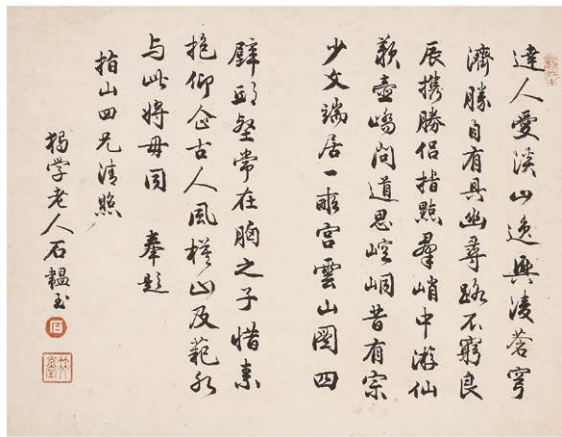 達人愛溪山逸興淩蒼穹
濟勝自有具幽尋路不窮良
辰攜勝侶指點羣峭中游仙
歌壺嶠問道思崆峒昔有宗
少文端居一畝宮雲山圖四
壁邱壑常在胸之子惜素
抱仰企古人風模山及範水
與此將毋同 奉題
指山四兄清照
獨學老人石韞玉
石